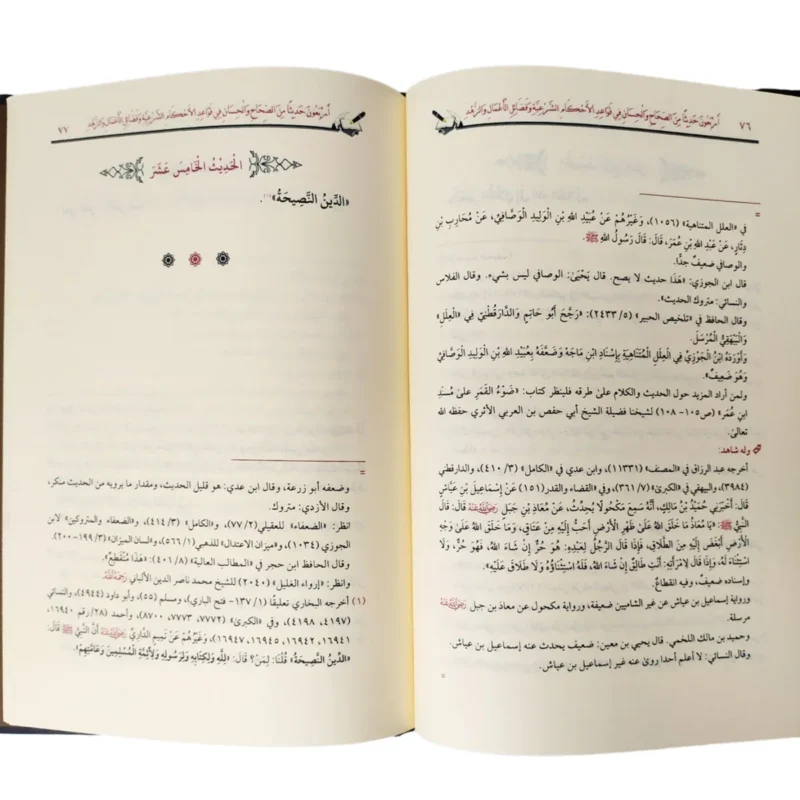 أربعون حديثا من الصحاح والحسان في قواعد الأحكام الشرعية وفضائل الأعمال والزهد ٧٦
=
في «العلل المتناهية» (١٠٥٦)، وَغَيْرُهُمْ عَنْ عُبَيْدِ اللهِ بْنِ الْوَلِيدِ الْوَصَّافِيِّ، عَنْ مُحَارِبِ بْنِ
دِثَارٍ، عَنْ عَبْدِ اللهِ بْنِ عُمَرَ، قَالَ: قَالَ رَسُولُ اللهِ ﷺ.
والوصافي ضعيفٌ جدًّا.
قال ابن الجوزي: «هَذَا حديث لا يصح. قال يَحْيَىٰ: الوصافي ليس بشيء. وقال الفلاس
والنسائي: متروك الحديث».
وقال الحافظ في «تلخيص الحبير» (٥/ ٢٤٣٣): «رَجَّحَ أَبُو حَاتِمٍ وَالدَّارَقُطْنِيّ فِي «الْعِلَلِ»
وَالْبَيْهَقِيُّ الْمُرْسَلَ.
وَأَوْرَدَهُ ابْنُ الْجَوْزِيِّ فِي الْعِلَلِ الْمُتَنَاهِيَةِ بِإِسْنَادِ ابْنِ مَاجَهْ وَضَعَّفَهُ بِعُبَيْدِ اللهِ بْنِ الْوَلِيدِ الْوَصَّافِيّ
وَهُوَ ضَعِيفٌ».
ولمن أراد المزيد حول الحديث والكلام علىٰ طرقه فلينظر كتاب: «ضَوْءُ القَمَرِ علىٰ مُسنَدِ
ابنِ عُمَر» (ص١٠٥- ١٠٨) لشيخنا فضيلة الشيخ أبي حفص بن العربي الأثري حفظه الله
تعالىٰ.
وله شاهد:
أخرجه عبد الرزاق في «المصنف» (١١٣٣١)، وابن عدي في «الكامل» (٣/ ٤١٠)، والدارقطني
(٣٩٨٤)، والبيهقي في «الكبرىٰ» (٧/ ٣٦١)، وفي «القضاء والقدر» (١٥١) عَنْ إِسْمَاعِيلَ بْنِ عَيَّاشٍ
قَالَ: أَخْبَرَنِي حُمَيْدُ بْنُ مَالِكٍ، أَنَّهُ سَمِعَ مَكْحُولًا يُحَدِّثُ، عَنْ مُعَاذِ بْنِ جَبَلٍ رَضِيَ اللهُ عَنْهُ قَالَ: قَالَ
النَّبِيُّ ﷺ: «يَا مُعَاذُ مَا خَلَقَ اللهُ عَلَىٰ ظَهْرِ الْأَرْضِ أَحَبَّ إِلَيْهِ مِنْ عَتَاقٍ، وَمَا خَلَقَ اللهُ عَلَىٰ وَجْهِ
الْأَرْضِ أَبْغَضَ إِلَيْهِ مِنَ الطَّلَاقِ، فَإِذَا قَالَ الرَّجُلُ لِعَبْدِهِ: هُوَ حُرٌّ إِنْ شَاءَ اللهُ، فَهُوَ حُرٌّ، وَلَا
اسْتِثْنَاءَ لَهُ، وَإِذَا قَالَ لِامْرَأَتِهِ: أَنْتِ طَالِقٌ إِنْ شَاءَ اللهُ، فَلَهُ اسْتِثْنَاؤُهُ وَلَا طَلَاقَ عَلَيْهِ».
وإسناده ضعيفٌ، وفيه انقطاعٌ.
ورواية إسماعيل بن عياش عن غير الشاميين ضعيفة، ورواية مكحول عن معاذ بن جبل رَضِيَ اللهُ عَنْهُ
مرسلة.
وحميد بن مالك اللخمي. قال يحيى بن معين: ضعيف يحدث عنه إسماعيل بن عياش.
وقال النسائي: لا أعلم أحدا روىٰ عنه غير إسماعيل بن عياش.
=
أربعون حديثا من الصحاح والحسان في قواعد الأحكام الشرعية وفضائل الأعمال والزهد ٧٧
الْحَدِيثُ الْخَامِسَ عَشَرَ
«الدِّينُ النَّصِيحَةُ»(١).
=
وضعفه أبو زرعة، وقال ابن عدي: هو قليل الحديث، ومقدار ما يرويه من الحديث منكر،
وقال الأزدي: متروك.
انظر: «الضعفاء» للعقيلي(٢/ ٧٧)، و«الكامل» (٣/ ٤١٤)، و«الضعفاء والمتروكين» لابن
الجوزي (١٠٣٤)، و«ميزان الاعتدال» للذهبي(١/ ٥٦٦)، و«لسان الميزان» (٣/ ١٩٩-٢٠٠).
وقال الحافظ ابن حجر في «المطالب العالية» (٨/ ٤٠١): «هَذَا مُنْقَطِعٌ».
وانظر: «إرواء الغليل» (٢٠٤٠) للشيخ محمد ناصر الدين الألباني رَحِمَهُ اللهُ.
(١) أخرجه البخاري تعليقًا (١/ ١٣٧- فتح الباري)، ومسلم (٥٥)، وأبو داود (٤٩٤٤)، والنسائي
(٤١٩٧، ٤١٩٨)، وفي «الكبرىٰ» (٧٧٧٢، ٧٧٧٣، ٨٧٠٠)، وأحمد (٢٨/ رقم ١٦٩٤٠،
١٦٩٤١، ١٦٩٤٢، ١٦٩٤٥، ١٦٩٤٧)، وَغَيْرُهُمْ عَنْ تَمِيمٍ الدَّارِيِّ رَضِيَ اللهُ عَنْهُ أَنَّ النَّبِيَّ ﷺ قَالَ:
«الدِّينُ النَّصِيحَةُ» قُلْنَا: لِمَنْ؟ قَالَ: «لِلَّهِ وَلِكِتَابِهِ وَلِرَسُولِهِ وَلِأَئِمَّةِ الْمُسْلِمِينَ وَعَامَّتِهِمْ».